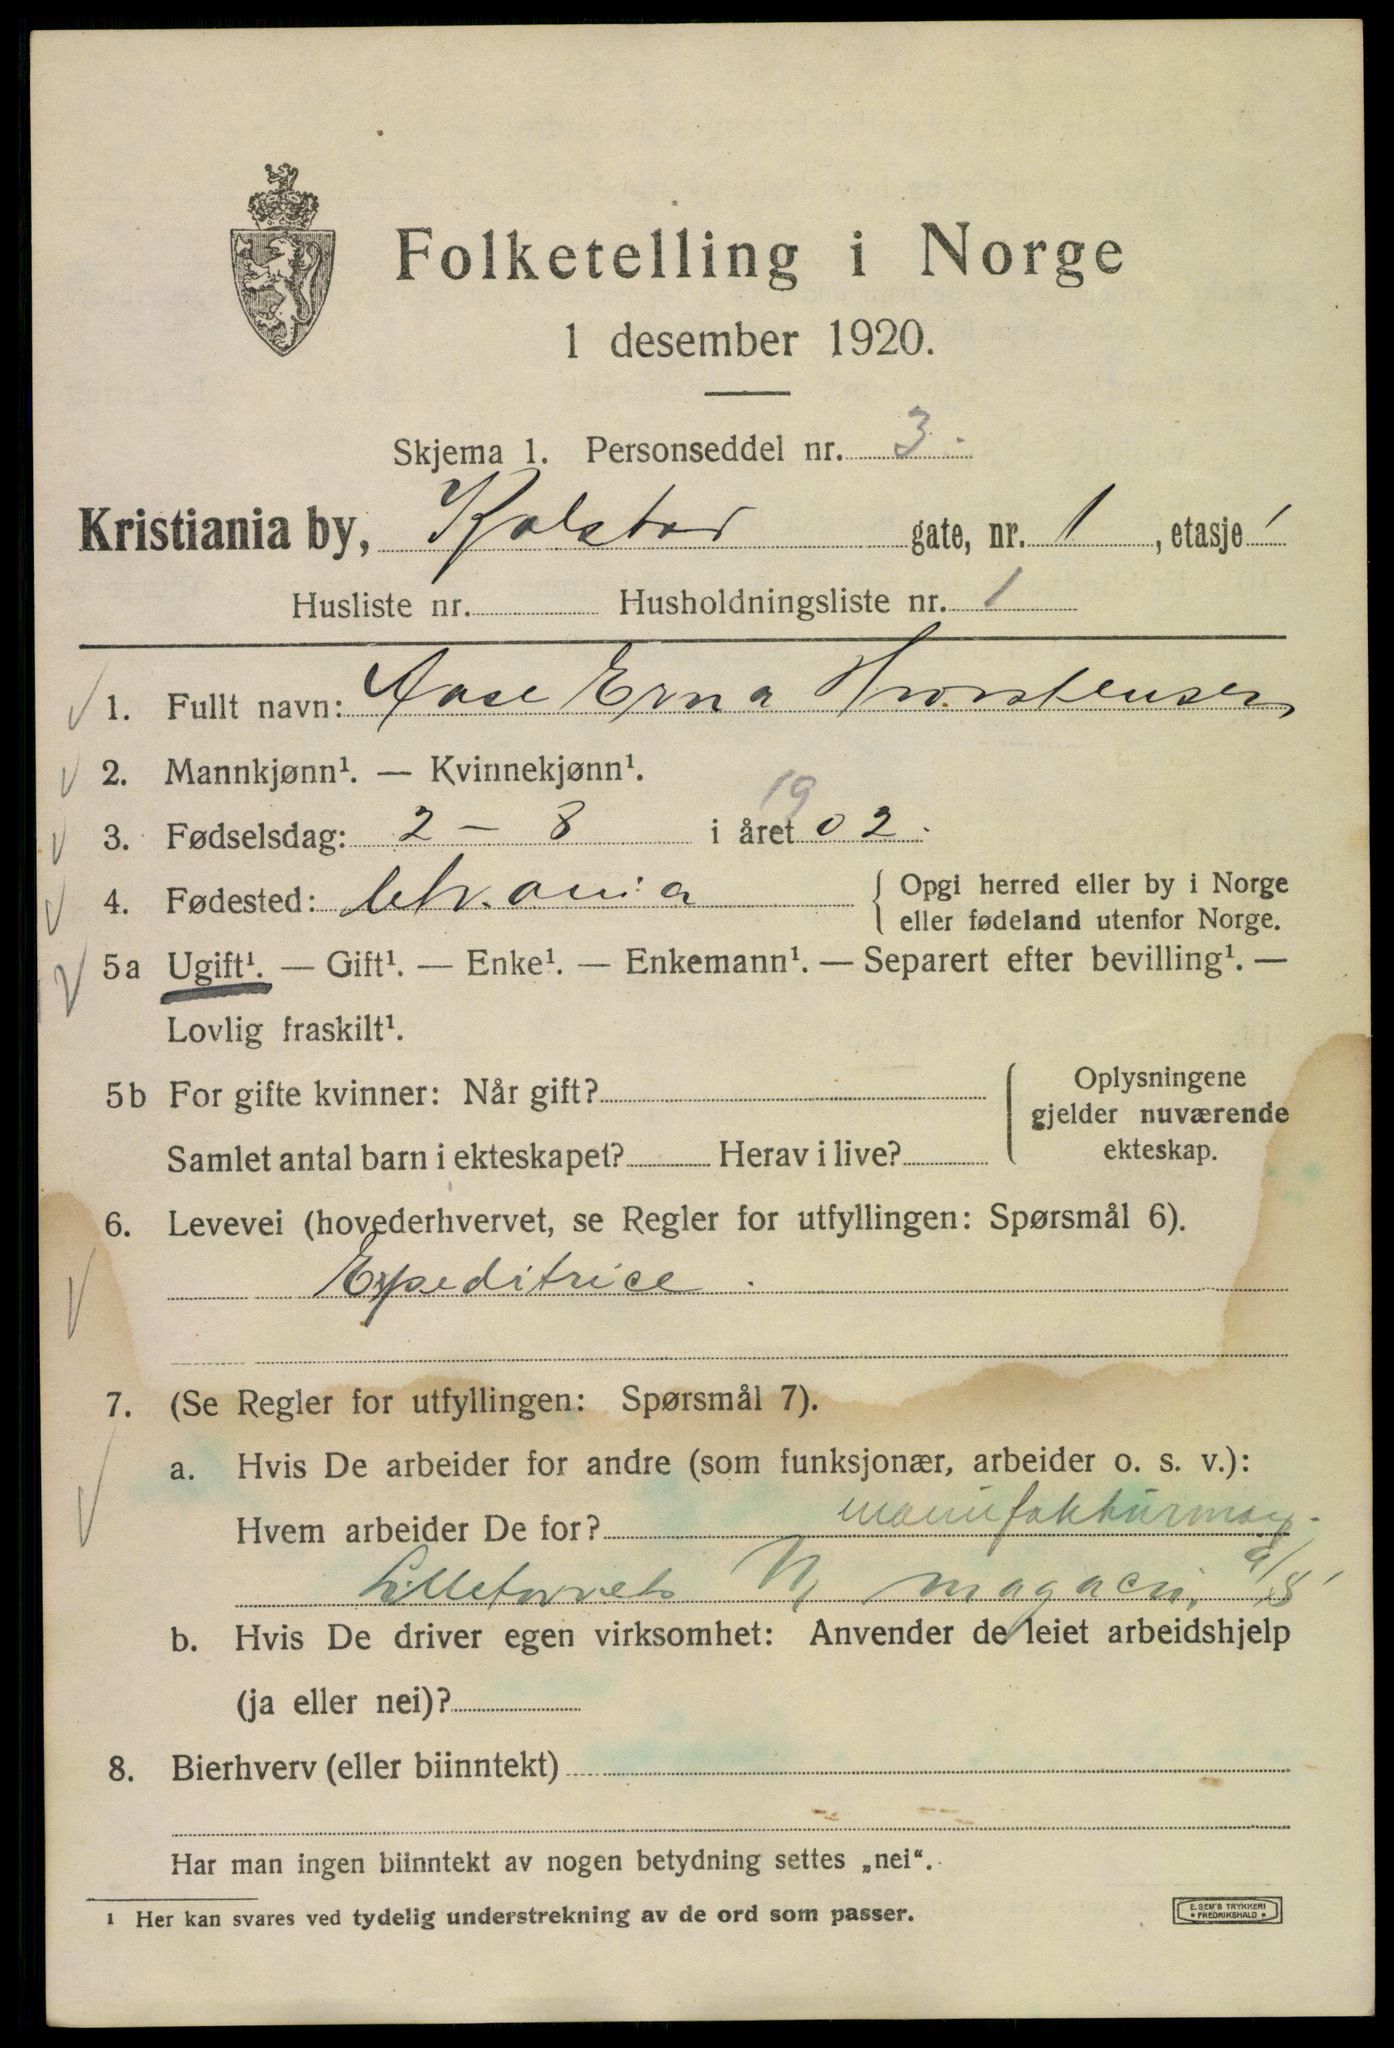 Folketelling i Norge
1 desember 1920.
Skjema 1. Personseddel nr. 3.
Kristiania by, Kolstad gate, nr. 1, etasje 1
Husliste nr. Husholdningsliste nr. 1
1. Fullt navn: Aase Erna Thorstensen
2. Mannkjønn¹. — Kvinnekjønn¹.
3. Fødselsdag: 2 – 8 i året 1902.
4. Fødested: Chr.ania { Opgi herred eller by i Norge
eller fødeland utenfor Norge.
5a Ugift¹. — Gift¹. — Enke¹. — Enkemann¹. — Separert efter bevilling¹. —
Lovlig fraskilt¹.
5b For gifte kvinner: Når gift? { Oplysningene
gjelder nuværende
ekteskap.
Samlet antal barn i ekteskapet? Herav i live?
6. Levevei (hovederhvervet, se Regler for utfyllingen: Spørsmål 6).
Expeditrice.
7. (Se Regler for utfyllingen: Spørsmål 7).
a. Hvis De arbeider for andre (som funksjonær, arbeider o. s. v.):
Hvem arbeider De for? manufakturmag.
Lilletorvets magacin, a/s
b. Hvis De driver egen virksomhet: Anvender de leiet arbeidshjelp
(ja eller nei)?
8. Bierhverv (eller biinntekt)
Har man ingen biinntekt av nogen betydning settes „nei“.
1 Her kan svares ved tydelig understrekning av de ord som passer.
E. SEM'S TRYKKERI
• FREDRIKSHALD •